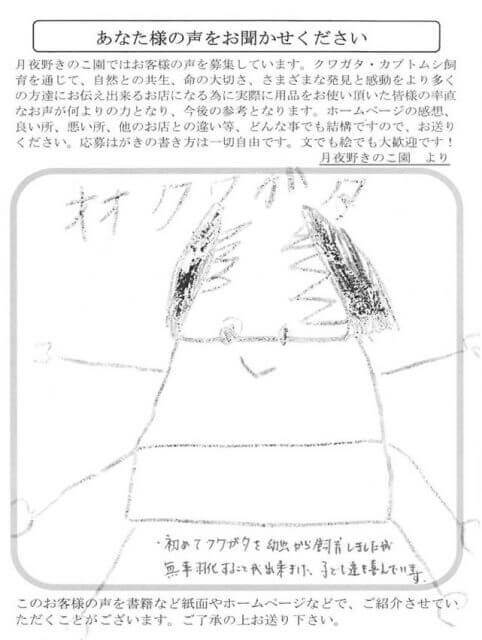 あなた様の声をお聞かせください
月夜野きのこ園ではお客様の声を募集しています。クワガタ・カブトムシ飼
育を通じて、自然との共生、命の大切さ、さまざまな発見と感動をより多く
の方達にお伝え出来るお店になる為に実際に用品をお使い頂いた皆様の率直
なお声が何よりの力となり、今後の参考となります。ホームページの感想、
良い所、悪い所、他のお店との違い等、どんな事でも結構ですので、お送り
ください。応募はがきの書き方は一切自由です。文でも絵でも大歓迎です！
月夜野きのこ園　より
オオクワガタ
・初めてクワガタを幼虫から飼育しましたが
無事羽化することが出来ました。子ども達も喜んでいます。
このお客様の声を書籍など紙面やホームページなどで、ご紹介させてい
ただくことがございます。ご了承の上お送り下さい。